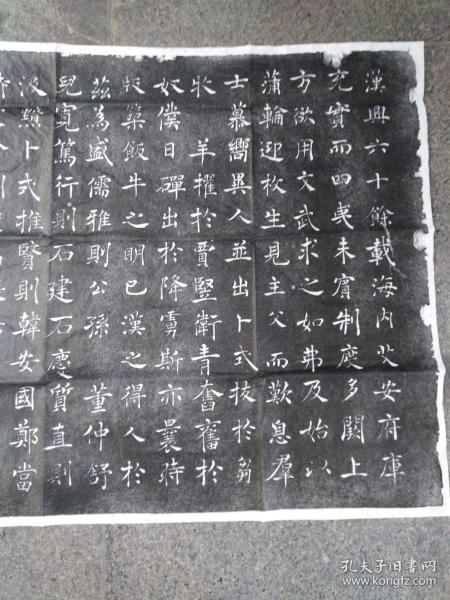 漢興六十餘載海内艾安府庫
充實而四夷未賓制度多闕上
方欲用文武求之如弗及始以
蒲輪迎枚生見主父而歎息羣
士慕嚮異人並出卜式拔於芻
牧 羊擢於賈竪衛青奮奮於
奴僕日磾出於降虜斯亦曩時
版築飯牛之明已漢之得人於
茲為盛儒雅則公孫 董仲舒
皃寬篤行則石建石慶質直則
汲黯卜式推賢則韓安國鄭當
孔夫子旧书网
www.kongfz.com